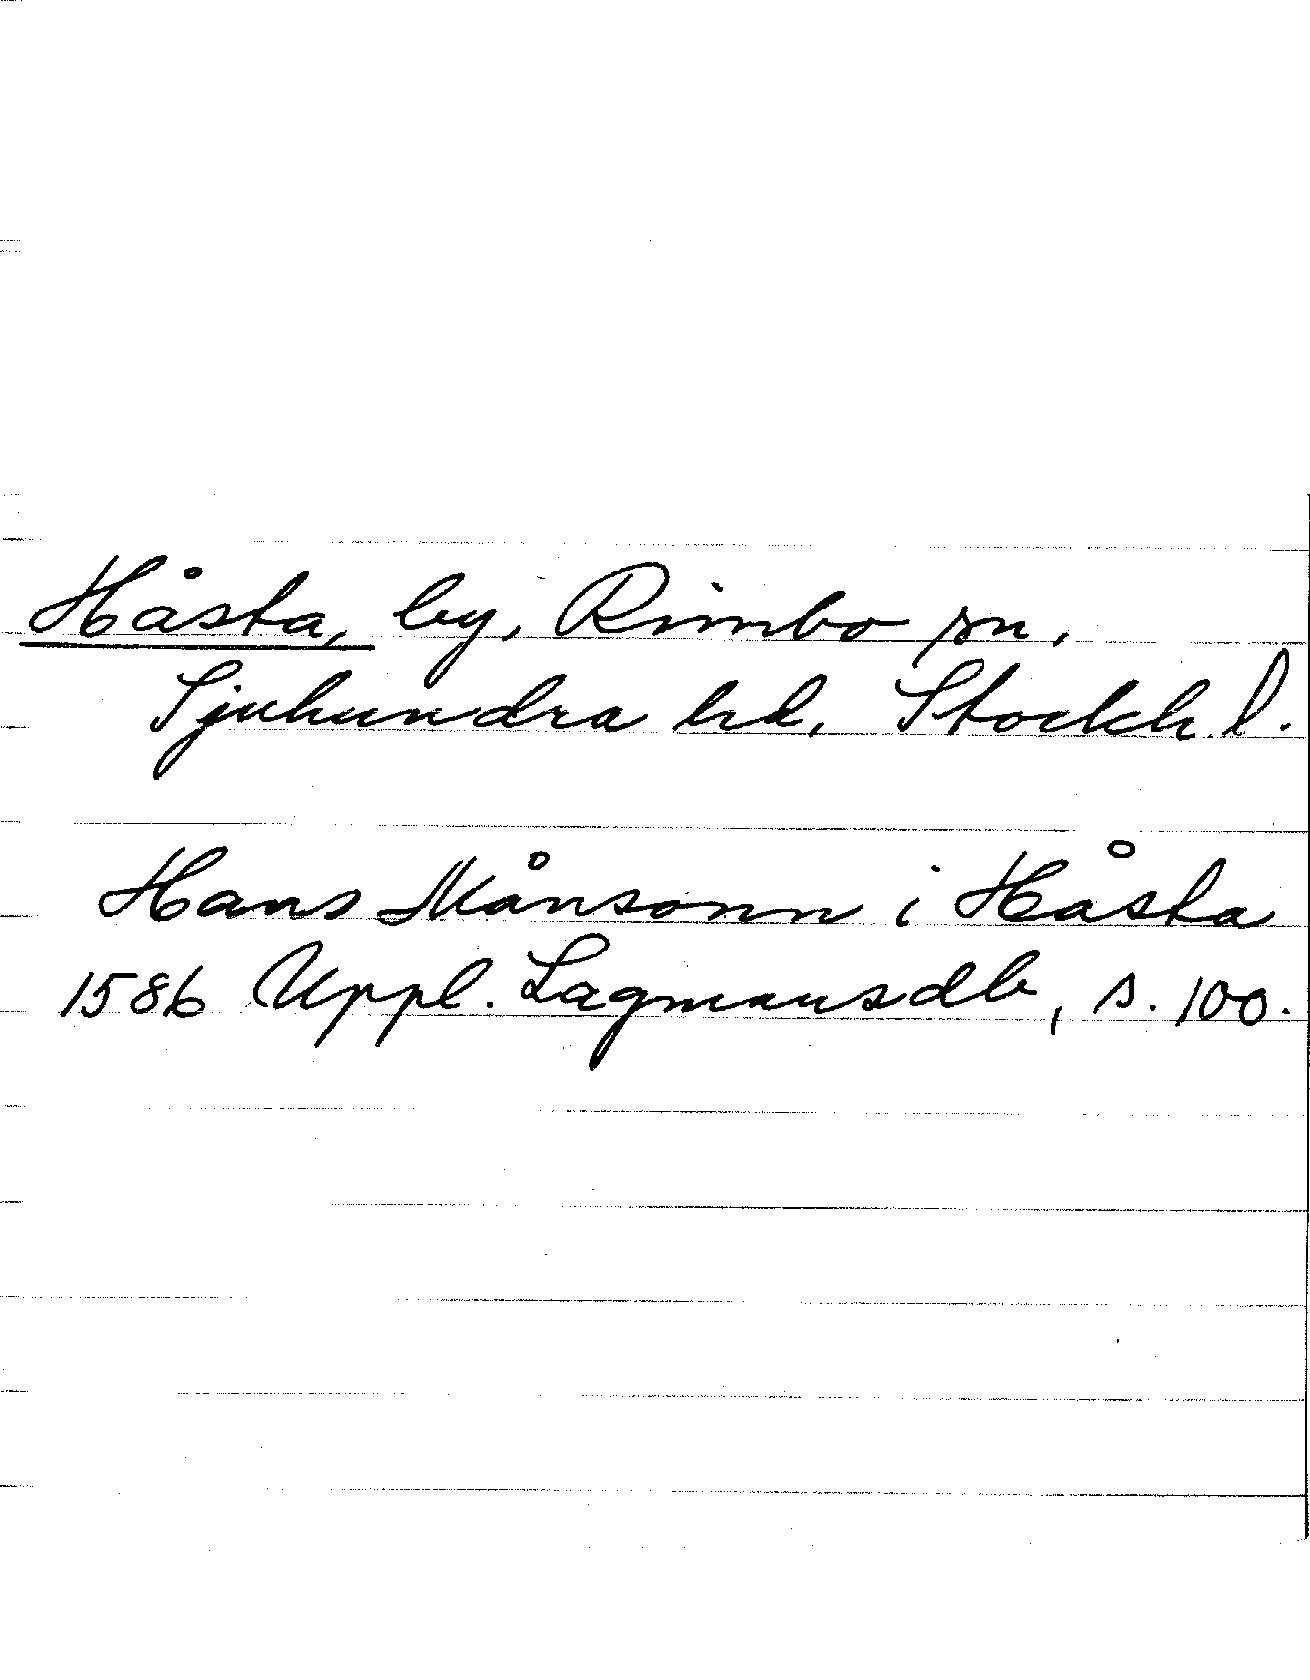 Håsta, by, Rimbo sn,
Sjuhundra hd, Stockh l.
Hans Månsonn i Håsta
1586 Uppl. Lagmansdb, s. 100.